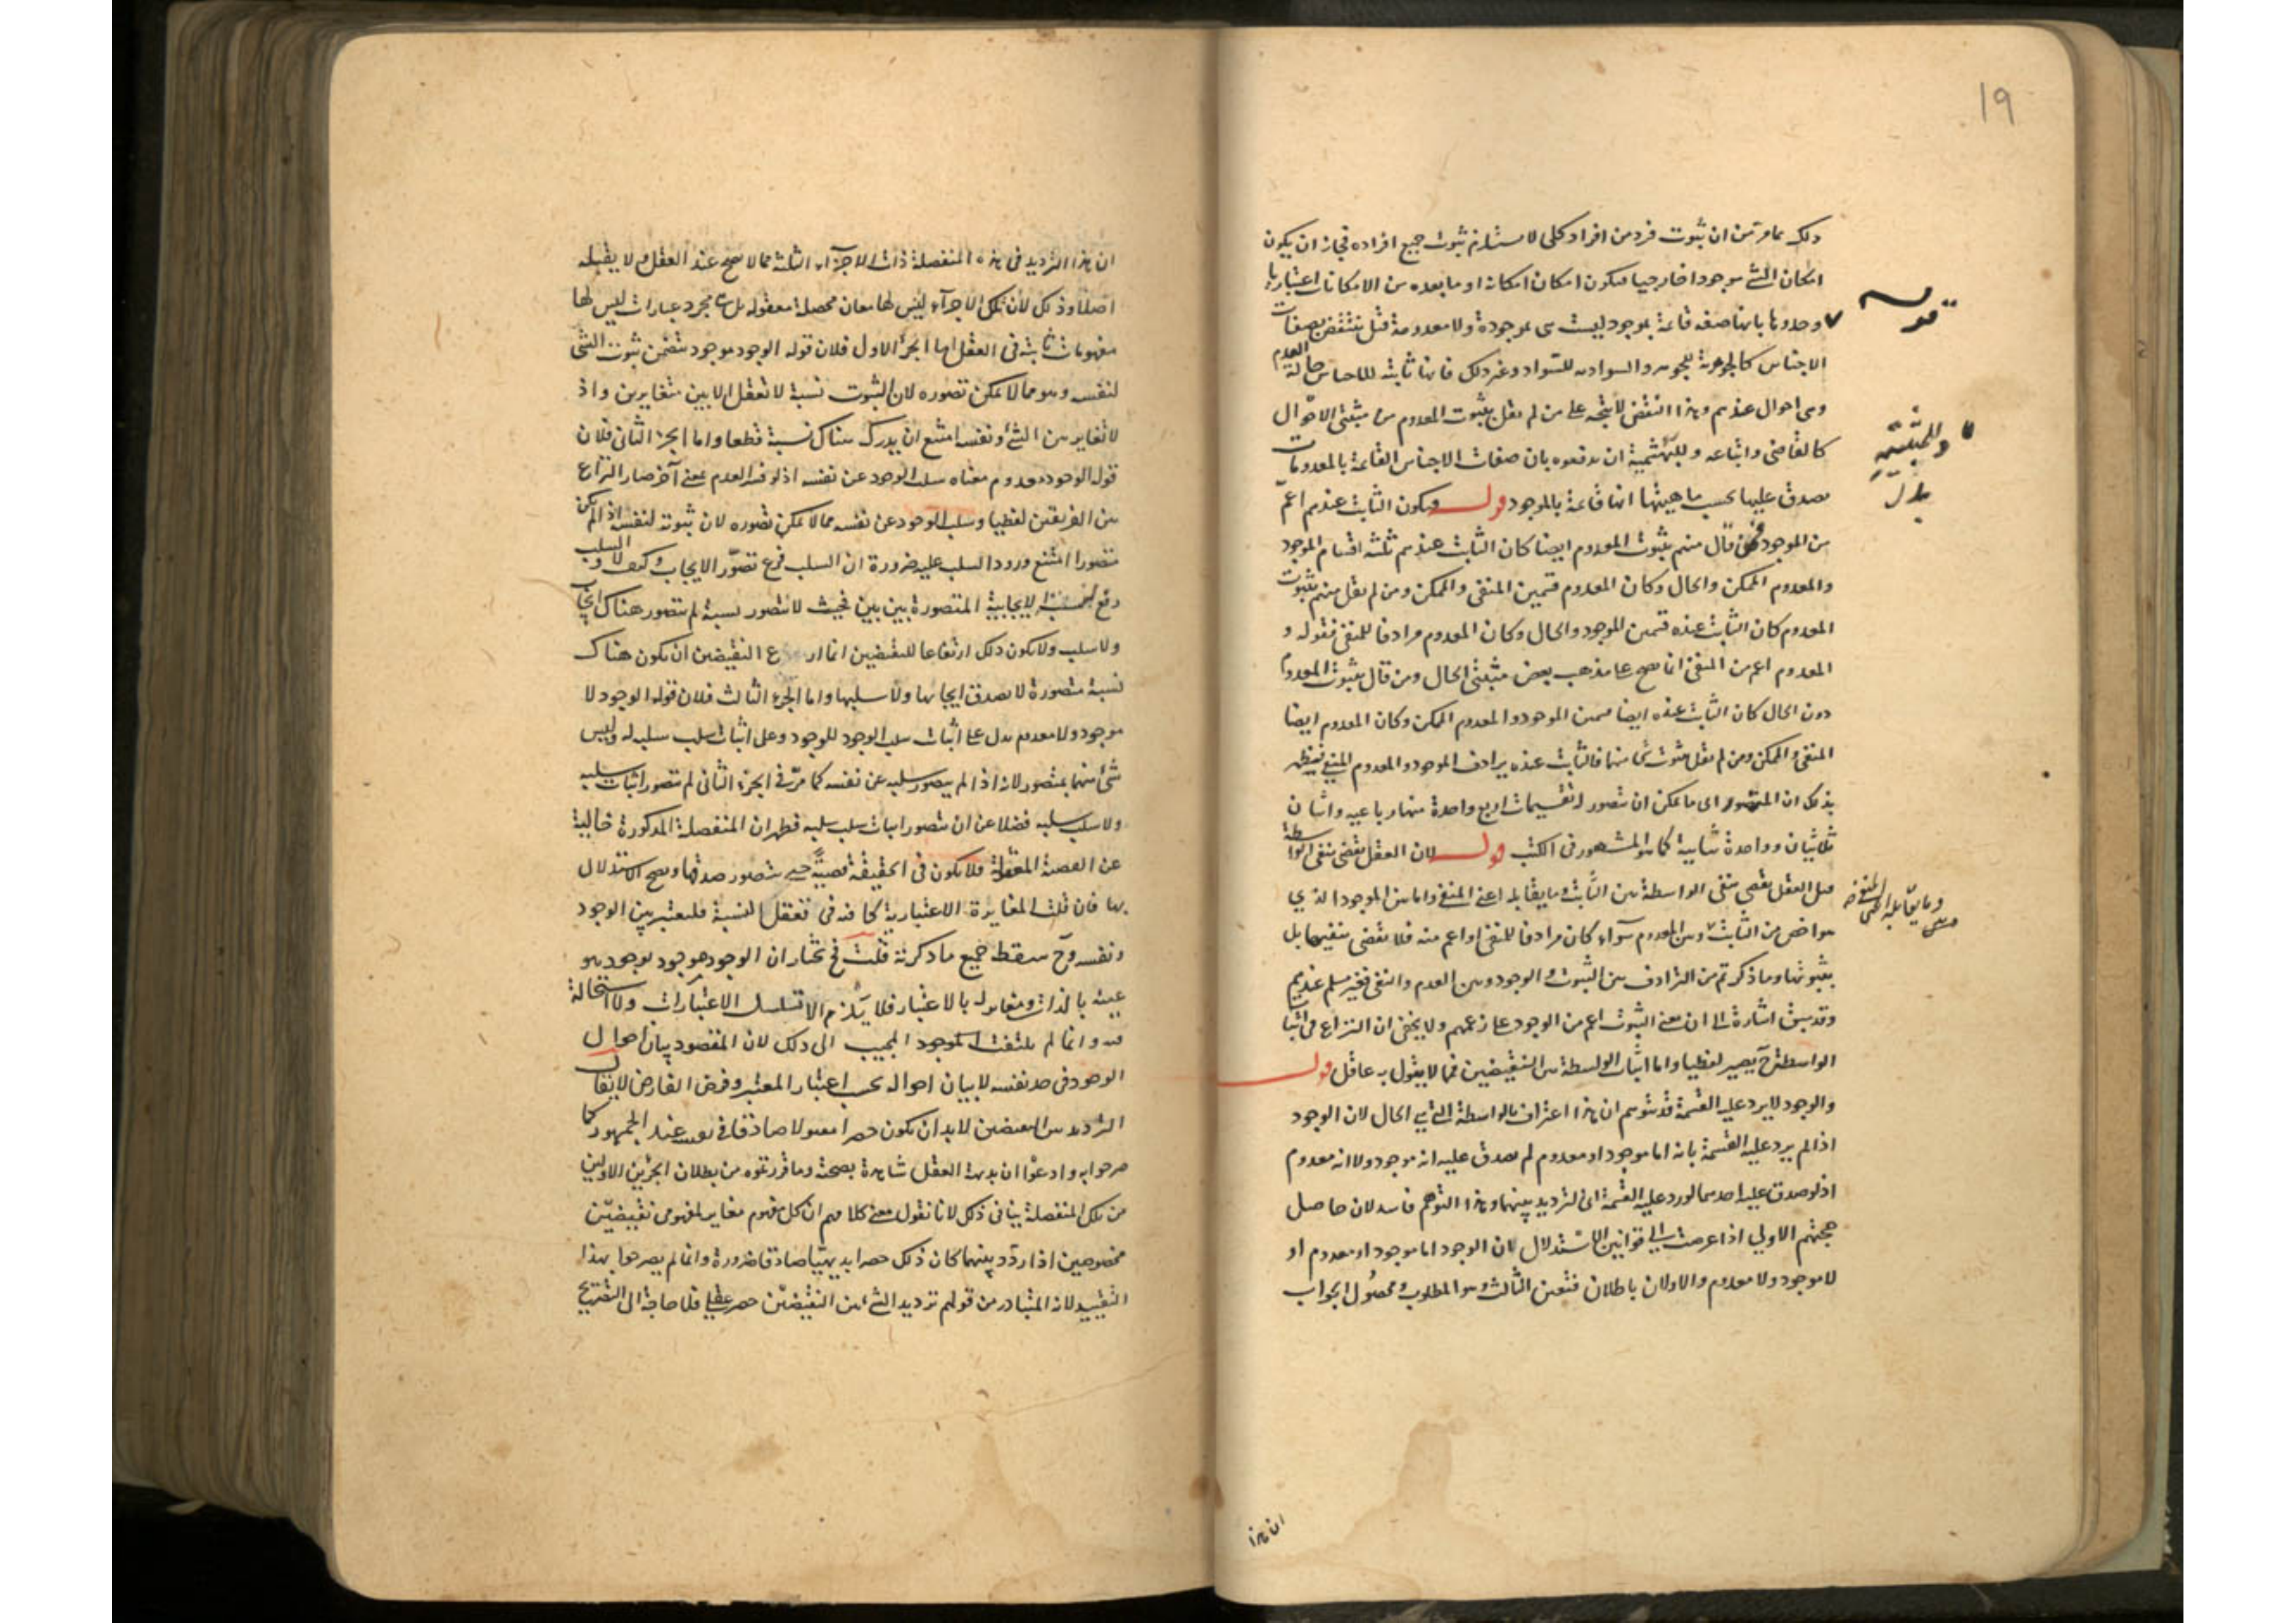 19
ذلك بما مر من ان ثبوت فرد من افراد كلى لا يستلزم ثبوت جميع افراده فجاز ان يكون
امكان الشئ موجودا خارجيا ويكون امكان امكانه او ما بعده من الامكانات اعتباريا
قوله
وحدوها بانها صفة قائمة بموجود ليست هى بموجودة ولا معدومة قيل ينتقض بصفات
الاجناس كالجوهرية للجوهر والسوادية للسواد وغير ذلك فانها ثابتة للاجناس حالة العدم
وهى احوال عندهم وهذا النقض لا يتجه على من لم يقل بثبوت المعدوم من مثبتى الاحوال
كالقاضى واتباعه وللبهشمية ان يدفعوه بان صفات الاجناس القائمة بالمعدومات
يصدق عليها بحسب ماهيتها انها قائمة بالموجود قوله ويكون الثابت عندهم اعم
من الموجود فمن قال منهم بثبوت المعدوم ايضا كان الثابت عندهم ثلثة اقسام الموجود
والمعدوم الممكن والحال وكان المعدوم قسمين المنفى والممكن ومن لم يقل منهم بثبوت
المعدوم كان الثابت عنده قسمين الموجود والحال وكان المعدوم مرادفا للمنفى فقوله و
المعدوم اعم من المنفى انما يصح على مذهب بعض مثبتى الحال ومن قال بثبوت المعدوم
دون الحال كان الثابت عنده ايضا قسمين الموجود والمعدوم الممكن وكان المعدوم ايضا
المنفى والممكن ومن لم يقل بثبوت شئ منهما فالثابت عنده يرادف الموجود والمعدوم المنفى فيظهر
بذلك ان المتصور اى ما يمكن ان يتصور له تقسيمات اربع واحدة منها رباعية واثنان
ثلاثيتان وواحدة ثنائية كما هو المشهور فى الكتب قوله لان العقل يقضى بنفى الواسطة
قيل العقل يقضى بنفى الواسطة بين الثابت وما يقابله اعنى المنفى واما بين الموجود الذي
هو اخص من الثابت وبين المعدوم سواء كان مرادفا للمنفى او اعم منه فلا يقضى بنفيها بل
بثبوتها وما ذكرتم من الترادف بين الثبوت والوجود وبين العدم والنفى فغير مسلم عندهم
وقد سبق اشارة الى ان معنى الثبوت اعم من الوجود على زعمهم ولا يخفى ان النزاع فى اثبات
الواسطة ح يصير لفظيا واما اثبات الواسطة بين النقيضين فمما لا يقول به عاقل قوله
والوجود لا يرد عليه القسمة قد يتوهم ان هذا اعتراف بالواسطة التى هى الحال لان الوجود
اذا لم يرد عليه القسمة بانه اما موجود او معدوم لم يصدق عليه انه موجود ولا انه معدوم
اذ لو صدق عليه احدهما لورد عليه القسمة اى الترديد بينهما وهذا التوهم فاسد لان حاصل
حجتهم الاولى اذا عرضت على قوانين الاستدلال ان الوجود اما موجود او معدوم او
لا موجود ولا معدوم والاولان باطلان فتعين الثالث وهو المطلوب ومحصول الجواب
ان هذا
ان هذا الترديد فى هذه المنفصلة ذات الاجزاء الثلثة مما لا يصح عند العقل ولا يقبله
اصلا وذلك لان تلك الاجزاء ليس لها معان محصلة معقولة بل هى مجرد عبارات ليس لها
مفهومات ثابتة فى العقل اما الجزء الاول فلان قوله الوجود موجود يتضمن ثبوت الشئ
لنفسه وهو مما لا يمكن تصوره لان الثبوت نسبة لا تعقل الا بين متغايرين واذ
لا تغاير بين الشئ ونفسه امتنع ان يدرك هناك نسبة قطعا واما الجزء الثانى فلان
قوله الوجود معدوم معناه سلب الوجود عن نفسه اذ لو فسر العدم بمعنى آخر صار النزاع
بين الفريقين لفظيا وسلب الوجود عن نفسه مما لا يمكن تصوره لان ثبوته لنفسه اذ لم يكن
متصورا امتنع ورود السلب عليه ضرورة ان السلب فرع تصور الايجاب وكيف لا والسلب
رفع النسبة الايجابية المتصورة بين بين فحيث لا يتصور نسبة لم يتصور هناك ايجاب
ولا سلب ولا يكون ذلك ارتفاعا للنقيضين انما ارتفاع النقيضين ان يكون هناك
نسبة متصورة لا يصدق ايجابها ولا سلبها واما الجزء الثالث فلان قوله الوجود لا
موجود ولا معدوم يدل على اثبات سلب الوجود للوجود وعلى اثبات سلب سلبه له وليس
شئ منهما بمتصور لانه اذا لم يتصور سلبه عن نفسه كما مر فى الجزء الثانى لم يتصور اثبات سلبه
ولا سلب سلبه فضلا عن ان يتصور اثبات سلب سلبه فظهر ان المنفصلة المذكورة خالية
عن القضية المعقولة فلا يكون فى الحقيقة قضية حتى يتصور صدقها ويصح الاستدلال
بها فان قلت المغايرة الاعتبارية كافية فى تعقل النسبة فليعتبر بين الوجود
ونفسه وح سقط جميع ما ذكرته قلت فح نختار ان الوجود موجود بوجود هو
عينه بالذات ومغاير له بالاعتبار فلا يلزم الا تسلسل الاعتبارات ولا استحالة
فيه وانما لم يلتفت المجيب الى ذلك لان المقصود بيان احوال
الوجود فى حد نفسه لا بيان احواله بحسب اعتبار المعتبر وفرض الفارض لا يقال
الترديد بين النقيضين لا بد ان يكون حصرا معقولا صادقا فى نفسه عند الجمهور كما
صرحوا به وادعوا ان بديهة العقل شاهدة بصحته وما قررتموه من بطلان الجزئين الاولين
من تلك المنفصلة ينافى ذلك لانا نقول معنى كلامهم ان كل مفهوم مغاير لمفهومى نقيضين
مخصوصين اذا ردد بينهما كان ذلك حصرا بديهيا صادقا ضرورة وانما لم يصرحوا بهذا
التقييد لانه المتبادر من قولهم ترديد الشئ بين النقيضين حصر عقلى فلا حاجة الى التصريح